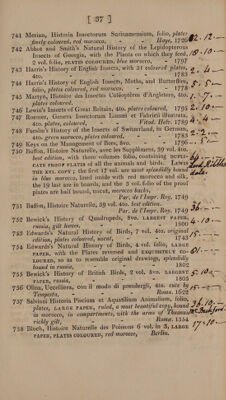 [ 37 ]
741 Merian, Historia Insectorum Surinamensium, folio, plates
finely coloured, red morocco, - Haye, 1726
742 Abbot and Smith's Natural History of the Lepidopterous
Insects of Georgia, with the Plants on which they feed,
2 vol. folio, PLATES COLOURED, blue morocco, - 1797
743 Harris's History of English Insects, with 51 coloured plates,
4to. 1783
744 Harris's History of English Insects, Moths, and Butterflies,
folio, plates coloured, red morocco,
745 Martyn, Histoire des Insectes Coléoptères d'Angleterre, 4to.
plates coloured.
746 Lewin's Insects of Great Britain, 4to. plates coloured, 1795
747 Roemer, Genera Insectorum Linnæi et Fabricii illustrata,
4to. plates, coloured, - Vitod. Helv. 1789
748 Fuesslin's History of the Insects of Switzerland, in German,
4to. green morocco, plates coloured, 1783
749 Keys on the Management of Bees, 8vo. 1796
750 Buffon, Histoire Naturelle, avec les Supplémens, 39 vol. 4to.
best edition, with three volumes folio, containing DUPLI-
CATE PROOF PLATES of all the animals and birds. LEWIS
THE XVI. COPY; the first 17 vol. are most splendidly bound
in blue morocco, lined inside with red morocco and silk,
the 19 last are in boards, and the 3 vol. folio of the proof
plates are half bound, uncut, morocco backs,
Par. de l'Impr. Roy. 1749
751 Buffon, Histoire Naturelle, 39 vol. 4to. best edition.
Par. de l'Impr. Roy. 1749
752 Bewick's History of Quadrupeds, 8vo. LARGEST PAPER,
russia, gilt leaves.
753 Edwards's Natural History of Birds, 7 vol. 4to. original
edition, plates coloured, uncut, 1743
754 Edwards's Natural History of Birds, 4 vol. folio, LARGE
PAPER, with the Plates REVISED and EXQUISITELY CO-
LOURED, so as to resemble original drawings, splendidly
bound in russia, 1802
755 Bewick's History of British Birds, 2 vol. 8vo. LARGEST
PAPER, russia, 1805
756 Olina, Uccelliera, con il modo di prendergli, 4to. rare by
Tempesta, - Roma. 1622
757 Salviani Historia Piscium et Aquatilium Animalium, folio,
plates, LARGE PAPER, ruled, a most beautiful copy, bound
in morocco, in compartments, with the arms of Thuanus
richly gilt, - Romæ. 1554
758 Bloch, Histoire Naturelle des Poissons 6 vol. in 3, LARGE
PAPER, PLATES COLOURED, red morocco, Berlin.